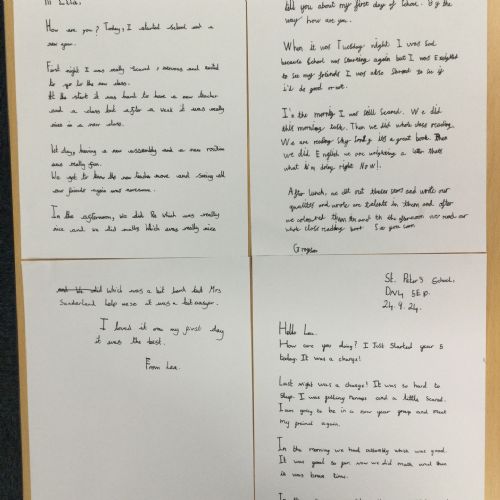 Hi Lukas,
How are you? Today, I started school and a
new year.
First night I was really scared, nervous and excited
to go to the new class.
At the start it was hard to have a new teacher
and a class but after a week it was really
nice in a new class.
1st day, having a new assembly and a new routine
was really fun.
We got to know the new teacher more and seeing all
our friends again was awesome.
In the afternoon, we did Re which was really
nice and we did maths which was really nice
did which was a bit hard but Mrs
Sunderland help us so it was a bit easyer.
I loved it on my first day
it was the best.
From Lea.
tell you about my first day of school. By the
way how are you.
When it was Tuesday night I was Sad
because School was starting again but I was Excited
to see my friends I was also Scared to see if
i'd do good or not.
In the morning I was still Scared. We did
this morning task. Then we did whole class reading
We are reading Sky it's a great book. Then
we did English we are writing a letter thats
what I'm doing right NOW!.
After lunch, we did our and wrote our
qualities and wrote are talents in them and after
we coloured them in and in the afternoon we read our
whole class reading book. See you soon
St. Peter's School,
24.9.24.
Hello Lea.
How are you doing? I Just Started year 5
today. It was a change!
Last night was a change! It was so hard to
sleep. I was getting nervous and a little Scared.
I am going to be in a new year group and meet
my friend again.
In the morning we had assembly which was good.
It was good so fun now we did maths and then
it was break time.